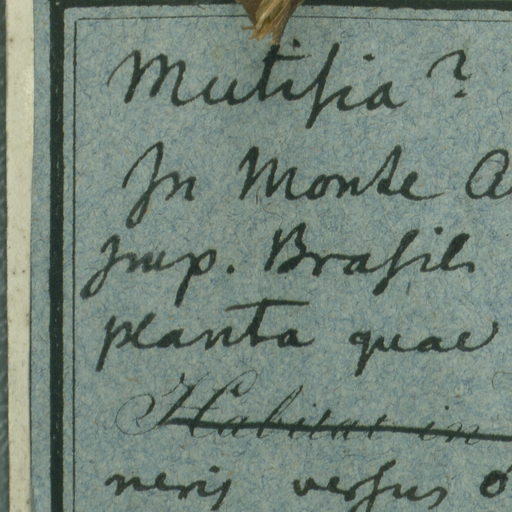 Mutisia?
In Monte A
Imp. Brasil
planta quae
Habitat in
neris versus o